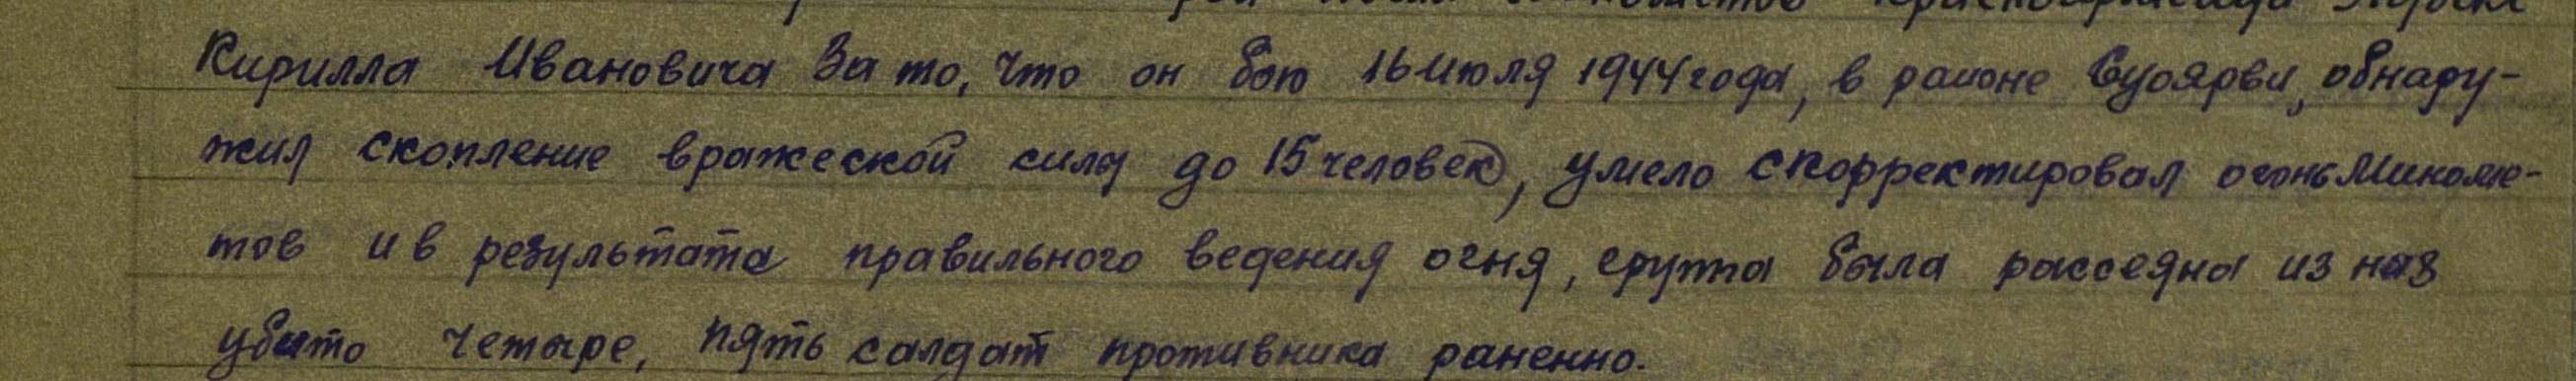 Кирилла Ивановича За то, что он бою 16 июля 1944 года, в районе Суоярви, обнару-
жил скопление вражеской силы до 15 человек, умело скорректировал огонь Миноме-
тов и в результата правильного ведения огня, группа была рассеяна из них
убито четыре, пять салдат противника раненно.